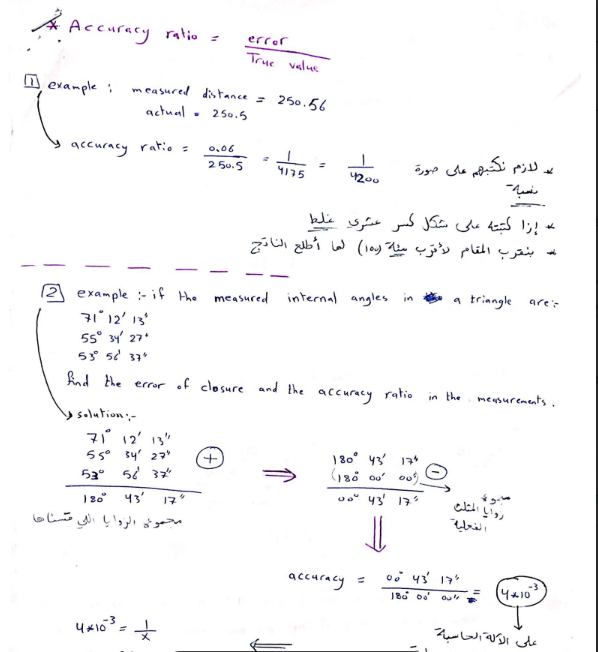 * Accuracy ratio = error / True value
1 example : measured distance = 250.56
actual = 250.5
accuracy ratio = 0.06 / 250.5 = 1 / 4175 = 1 / 4200
* لازم نكتبهم على صورة
نسبة
* إذا كتبته على شكل كسر عشري غلط
* بنقرب المقام لأقرب مئة (100) لما أطلع الناتج
2 example :- if the measured internal angles in a triangle are:-
71° 12' 13"
55° 34' 27"
53° 56' 37"
find the error of closure and the accuracy ratio in the measurements.
solution:-
71° 12' 13"
55° 34' 27"
53° 56' 37"
+
180° 43' 17"
مجموع الزوايا اللي قسناها
⇒
180° 43' 17"
(180° 00' 00")
−
00° 43' 17"
مجموع
زوايا المثلث
الفعلية
accuracy = 00° 43' 17" / 180° 00' 00" = 4*10^-3
على الآلة الحاسبة
4*10^-3 = 1 / x